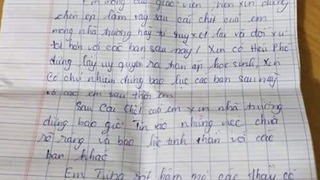 Em mong các giáo viên, hiền xin đừng
chèn ép làm vậy sau cái chết của em
mong nhà trường hãy tự suy xét lại và đối xử
tốt hơn với các bạn sau này! Xin cô Hiệu Phó
đừng lấy uy quyền ra trấn áp học sinh, xin
cô chủ nhiệm đừng bạo lực các bạn sau này
và các em sau thêm em.
Sau cái chết của em xin nhà trường
đừng bao giờ tin các những việc chưa
rõ ràng và bạo lực tinh thần với các
bạn khác
Em từng rất hâm mộ các thầy cô